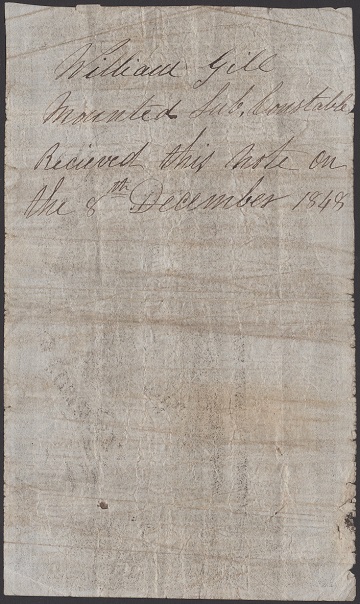 William Gill
Mounted Sub. Constable
Recieved this note on
the 8th December 1848